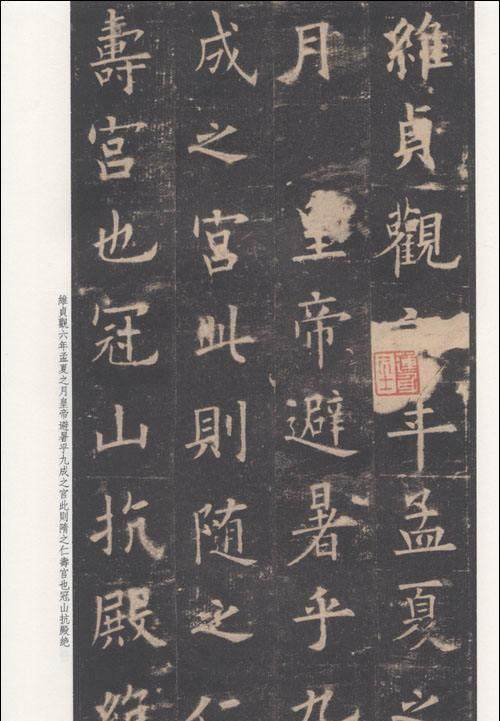 維貞觀六年孟夏之
月皇帝避暑乎九
成之宮此則随之仁
壽宮也冠山抗殿絶
維貞觀六年孟夏之月皇帝避暑乎九成之宮此則隋之仁壽宮也冠山抗殿絶